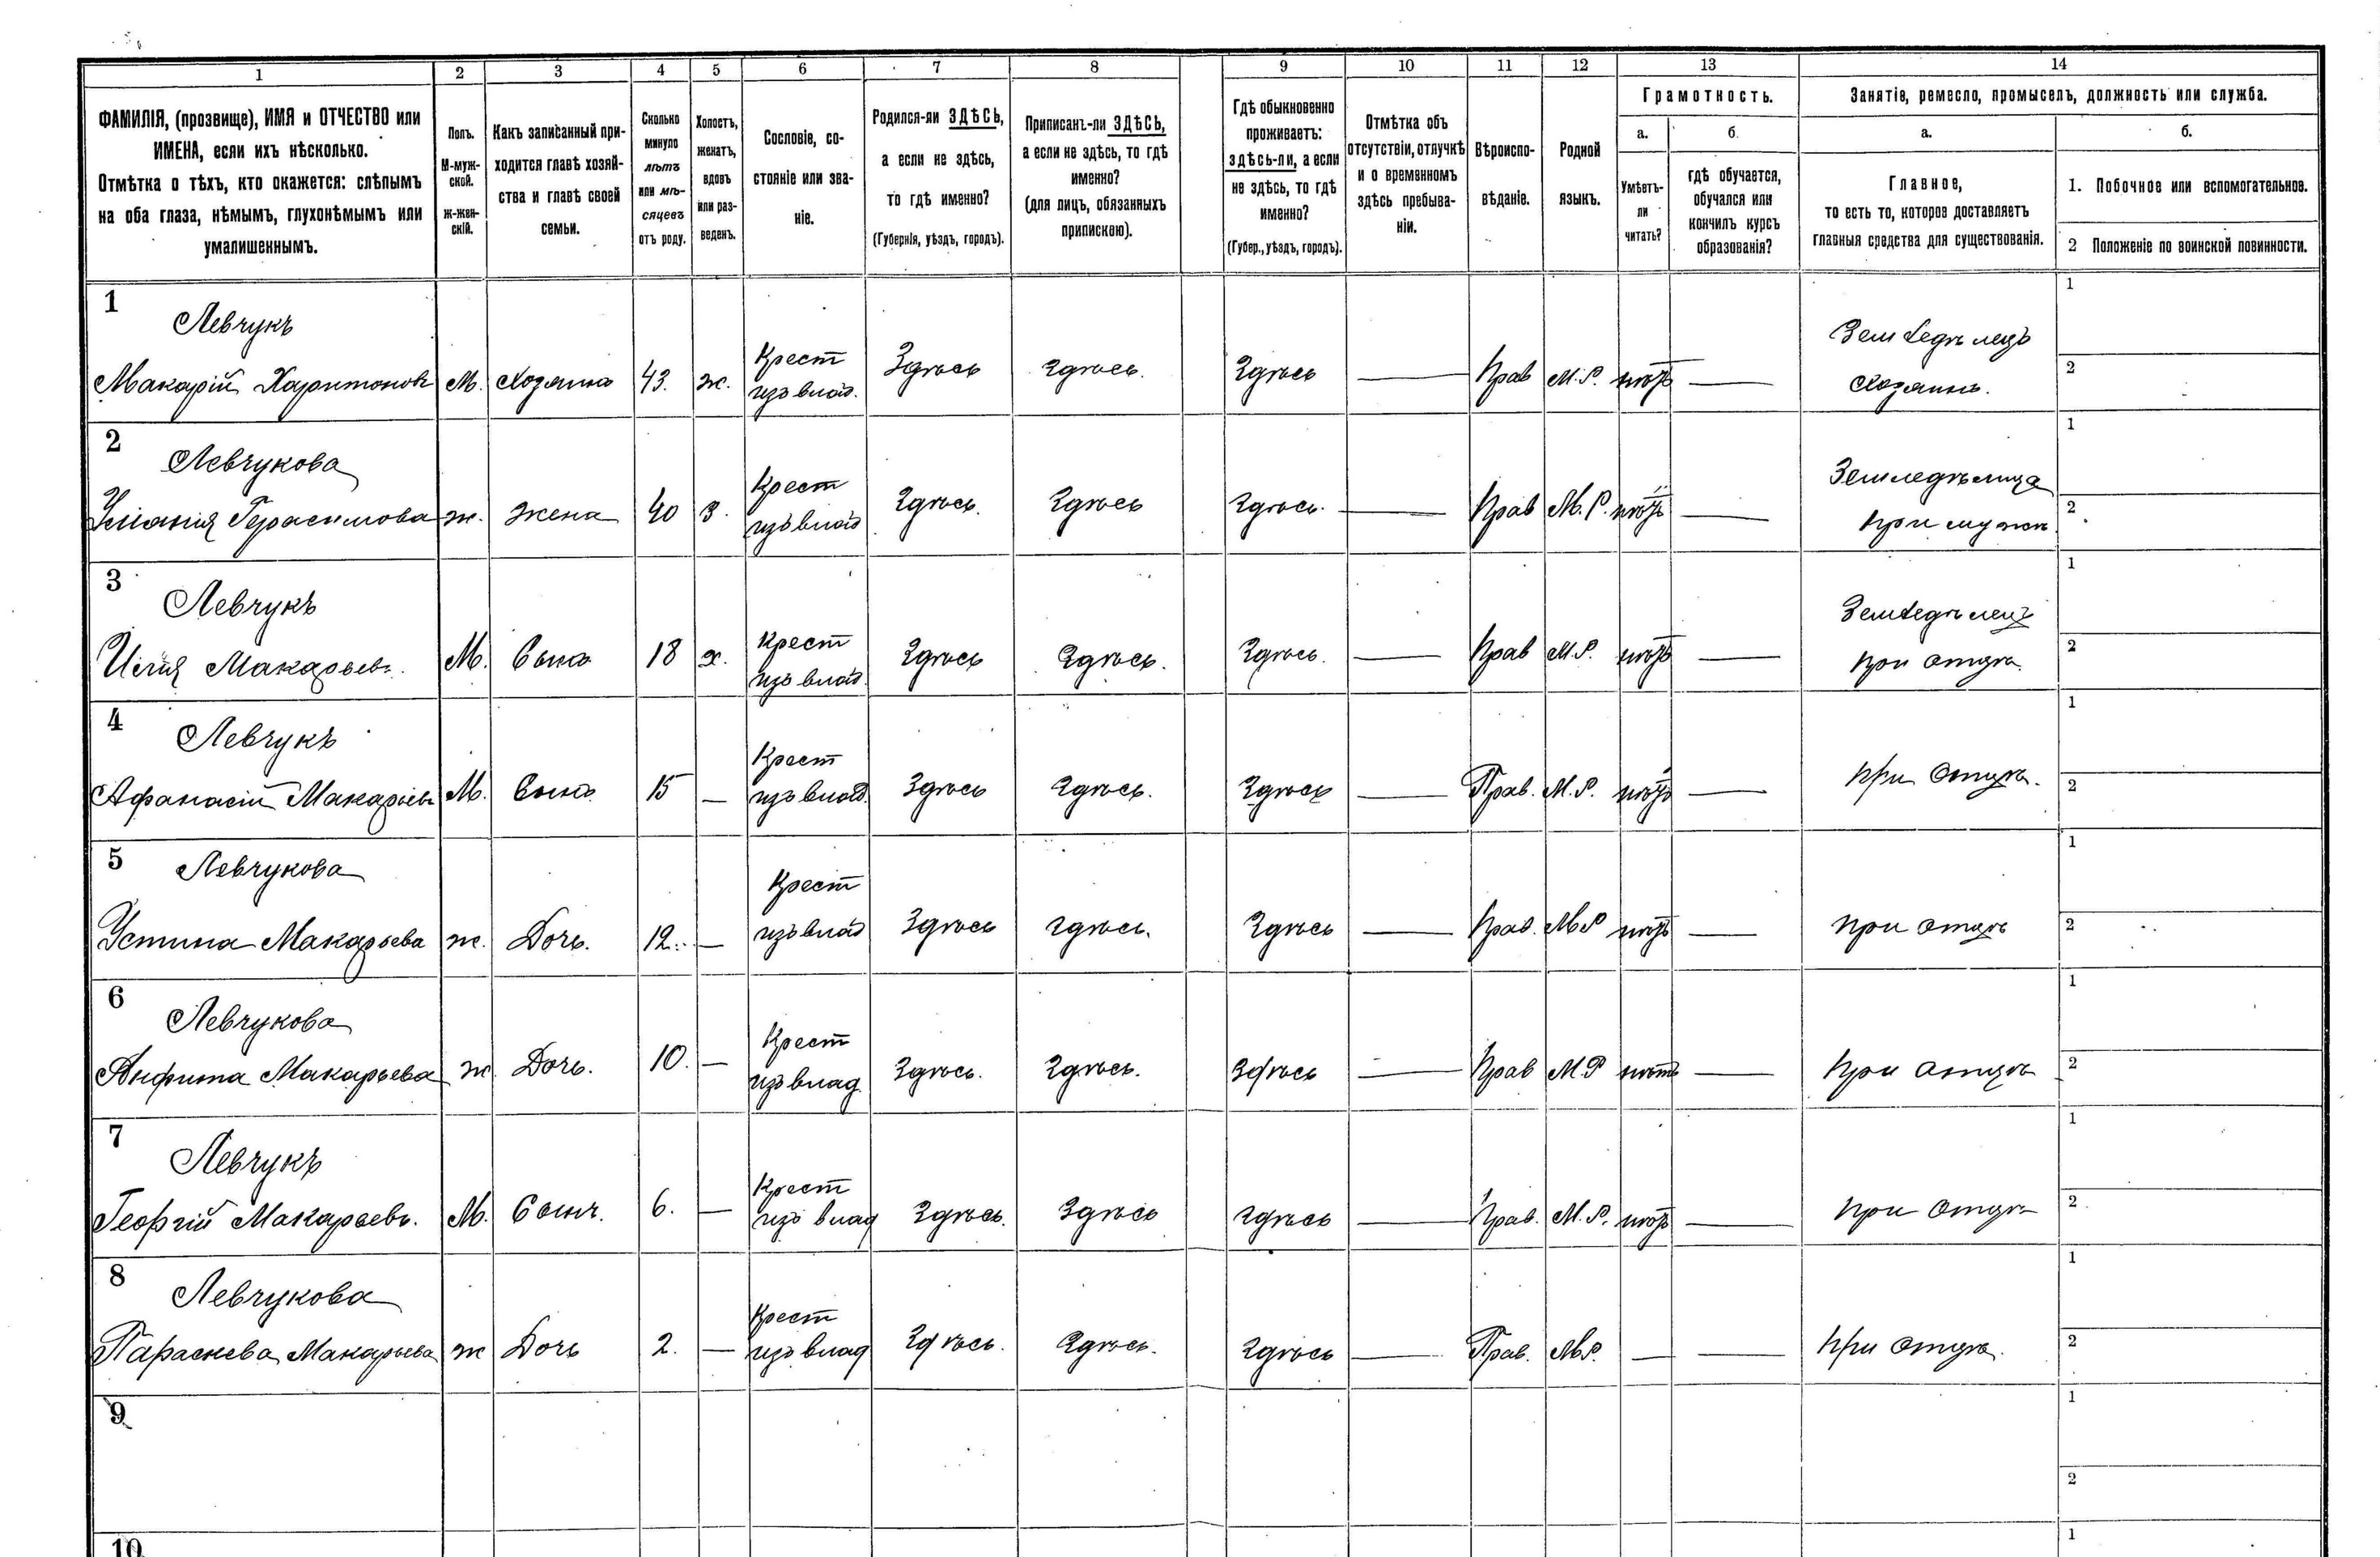 1 2 3 4 5 6 7 8 9 10 11 12 13 14
ФАМИЛІЯ, (прозвище), ИМЯ и ОТЧЕСТВО или
ИМЕНА, если ихъ нѣсколько.
Отмѣтка о тѣхъ, кто окажется: слѣпымъ
на оба глаза, нѣмымъ, глухонѣмымъ или
умалишеннымъ.
Полъ.
М-муж-
ской.
Ж-жен-
скій.
Какъ записанный при-
ходится главѣ хозяй-
ства и главѣ своей
семьи.
Сколько
минуло
лѣтъ
или мѣ-
сяцевъ
отъ роду.
Холостъ,
женатъ,
вдовъ
или раз-
веденъ.
Сословіе, со-
стояніе или зва-
ніе.
Родился-ли ЗДѢСЬ,
а если не здѣсь,
то гдѣ именно?
(Губернія, уѣздъ, городъ).
Приписанъ-ли ЗДѢСЬ,
а если не здѣсь, то гдѣ
именно?
(для лицъ, обязанныхъ
припискою).
Гдѣ обыкновенно
проживаетъ:
здѣсь-ли, а если
не здѣсь, то гдѣ
именно?
(Губер., уѣздъ, городъ).
Отмѣтка объ
отсутствіи, отлучкѣ
и о временномъ
здѣсь пребыва-
ніи.
Вѣроиспо-
вѣданіе.
Родной
языкъ.
Грамотность.
а. б.
Умѣетъ-
ли
читать?
гдѣ обучается,
обучался или
кончилъ курсъ
образованія?
Занятіе, ремесло, промыселъ, должность или служба.
а. б.
Главное,
то есть то, которое доставляетъ
главныя средства для существованія.
1. Побочное или вспомогательное.
2 Положеніе по воинской повинности.
1 Левчукъ Крест Земледѣлецъ 1
Макарій Харитоновъ М. Хозяинъ 43. ж. изъ влад. Здѣсь Здѣсь. Здѣсь — Прав М.Р. нѣтъ — Хозяинъ. 2
2 Левчукова Крест Земледѣлица 1
Герасимова ж. жена 40 З. изъ влад Здѣсь. Здѣсь Здѣсь. — Прав М.Р. нѣтъ — при мужѣ. 2
3 Левчукъ Крест Земледѣлецъ 1
Илія Макарьевъ. М. Сынъ 18 х. изъ влад. Здѣсь Здѣсь. Здѣсь. — Прав М.Р. нѣтъ — при отцѣ. 2
4 Левчукъ Крест 1
Афанасій Макарьевъ М. Сынъ 15 — изъ влад. Здѣсь Здѣсь. Здѣсь — Прав. М.Р. нѣтъ — при отцѣ. 2
5 Левчукова Крест 1
Устина Макарьева ж. Дочь. 12. — изъ влад Здѣсь Здѣсь. Здѣсь — Прав. М.Р нѣтъ — при отцѣ 2
6 Левчукова Крест 1
Анфима Макарьева ж Дочь. 10. — изъ влад. Здѣсь. Здѣсь. Здѣсь — Прав М.Р нѣтъ — при отцѣ 2
7 Левчукъ Крест 1
Георгій Макарьевъ. М. Сынъ. 6. — изъ влад Здѣсь. Здѣсь здѣсь — Прав. М.Р. нѣтъ — при отцѣ 2
8 Левчукова Крест 1
Параскева Макарьева ж Дочь 2. — изъ влад Здѣсь. Здѣсь. Здѣсь — Прав. М.Р. — — при отцѣ. 2
9 1
2
10 1